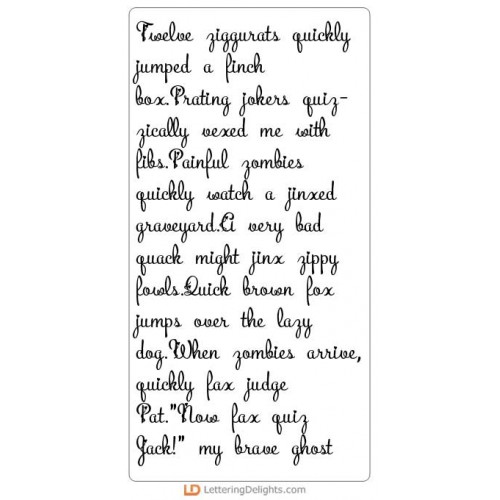 Twelve ziggurats quickly
jumped a finch
box.Prating jokers quiz-
zically vexed me with
fibs.Painful zombies
quickly watch a jinxed
graveyard.A very bad
quack might jinx zippy
fowls.Quick brown fox
jumps over the lazy
dog.When zombies arrive,
quickly fax judge
Pat."Now fax quiz
Jack!" my brave ghost
LD LetteringDelights.com